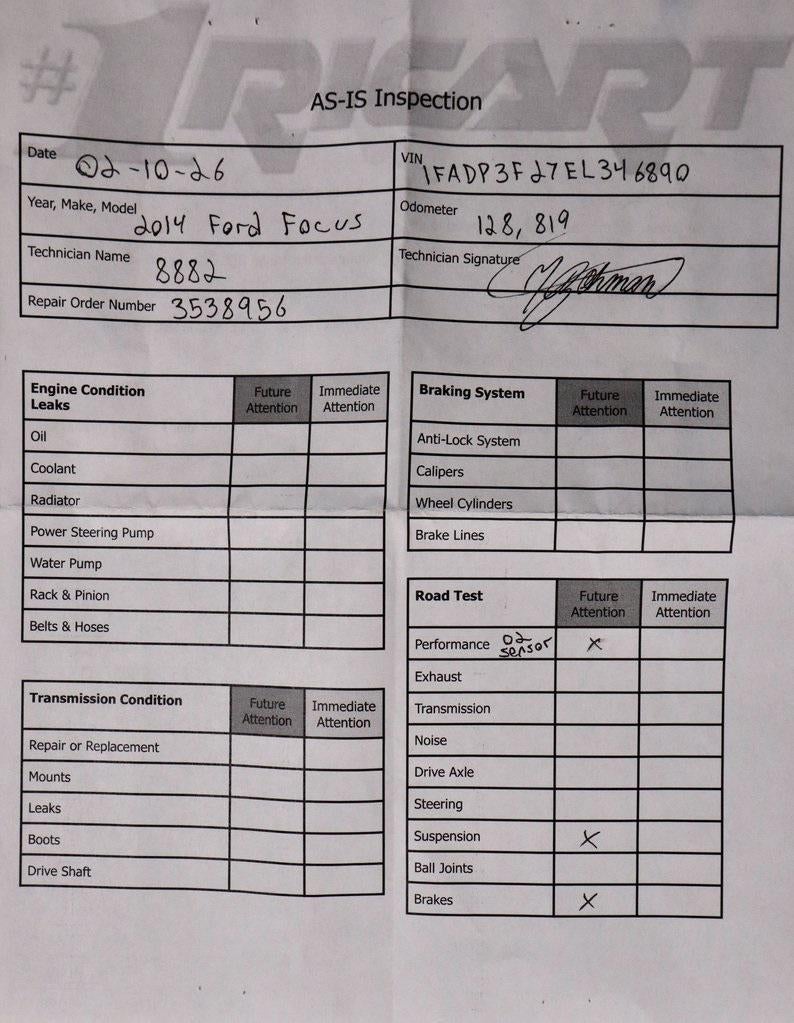 #1RICART
AS-IS Inspection
Date 02-10-26
VIN 1FADP3F27EL346890
Year, Make, Model 2014 Ford Focus
Odometer 128,819
Technician Name 8882
Technician Signature
Repair Order Number 3538956
Engine Condition Leaks Future Attention Immediate Attention
Oil
Coolant
Radiator
Power Steering Pump
Water Pump
Rack & Pinion
Belts & Hoses
Transmission Condition Future Attention Immediate Attention
Repair or Replacement
Mounts
Leaks
Boots
Drive Shaft
Braking System Future Attention Immediate Attention
Anti-Lock System
Calipers
Wheel Cylinders
Brake Lines
Road Test Future Attention Immediate Attention
Performance O2 sensor X
Exhaust
Transmission
Noise
Drive Axle
Steering
Suspension X
Ball Joints
Brakes X